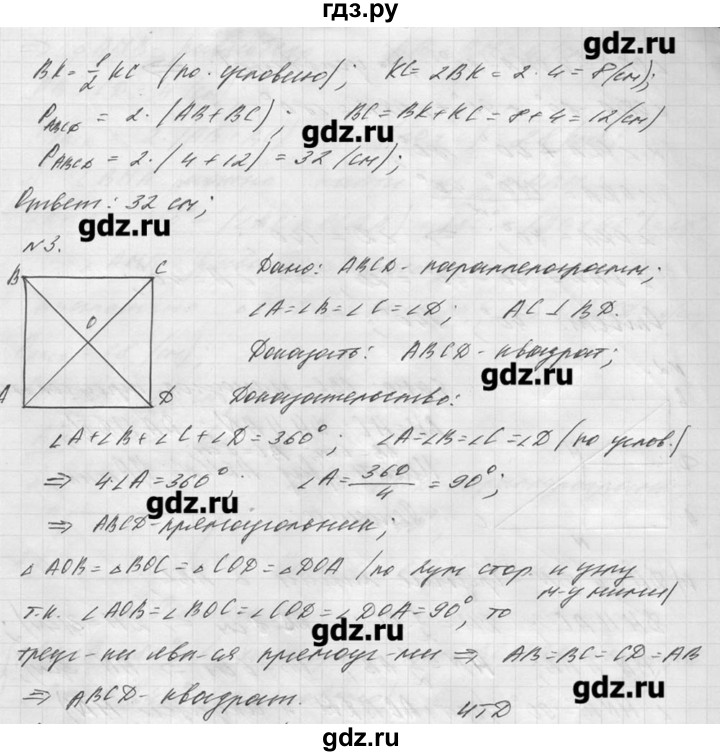 гдз.ру
BK = 1/2 KC (по условию); KC = 2BK = 2 · 4 = 8 (см);
P ABCD = 2 · (AB + BC); BC = BK + KC = 8 + 4 = 12 (см)
P ABCD = 2 · (4 + 12) = 32 (см);
Ответ: 32 см;
№3.
B C
O
A D
Дано: ABCD - параллелограмм;
∠A = ∠B = ∠C = ∠D; AC ⊥ BD.
Доказать: ABCD - квадрат;
Доказательство:
∠A + ∠B + ∠C + ∠D = 360°; ∠A = ∠B = ∠C = ∠D (по услов.)
⇒ 4∠A = 360°; ∠A = 360/4 = 90°;
⇒ ABCD - прямоугольник;
△AOB = △BOC = △COD = △DOA (по двум стор. и углу м-у ними)
т.к. ∠AOB = ∠BOC = ∠COD = ∠DOA = 90°, то
треуг-ки явл-ся прямоуг-ми ⇒ AB = BC = CD = AB
⇒ ABCD - квадрат.
ЧТД
gdz.ru
gdz.ru
gdz.ru
gdz.ru
gdz.ru
gdz.ru
gdz.ru
gdz.ru